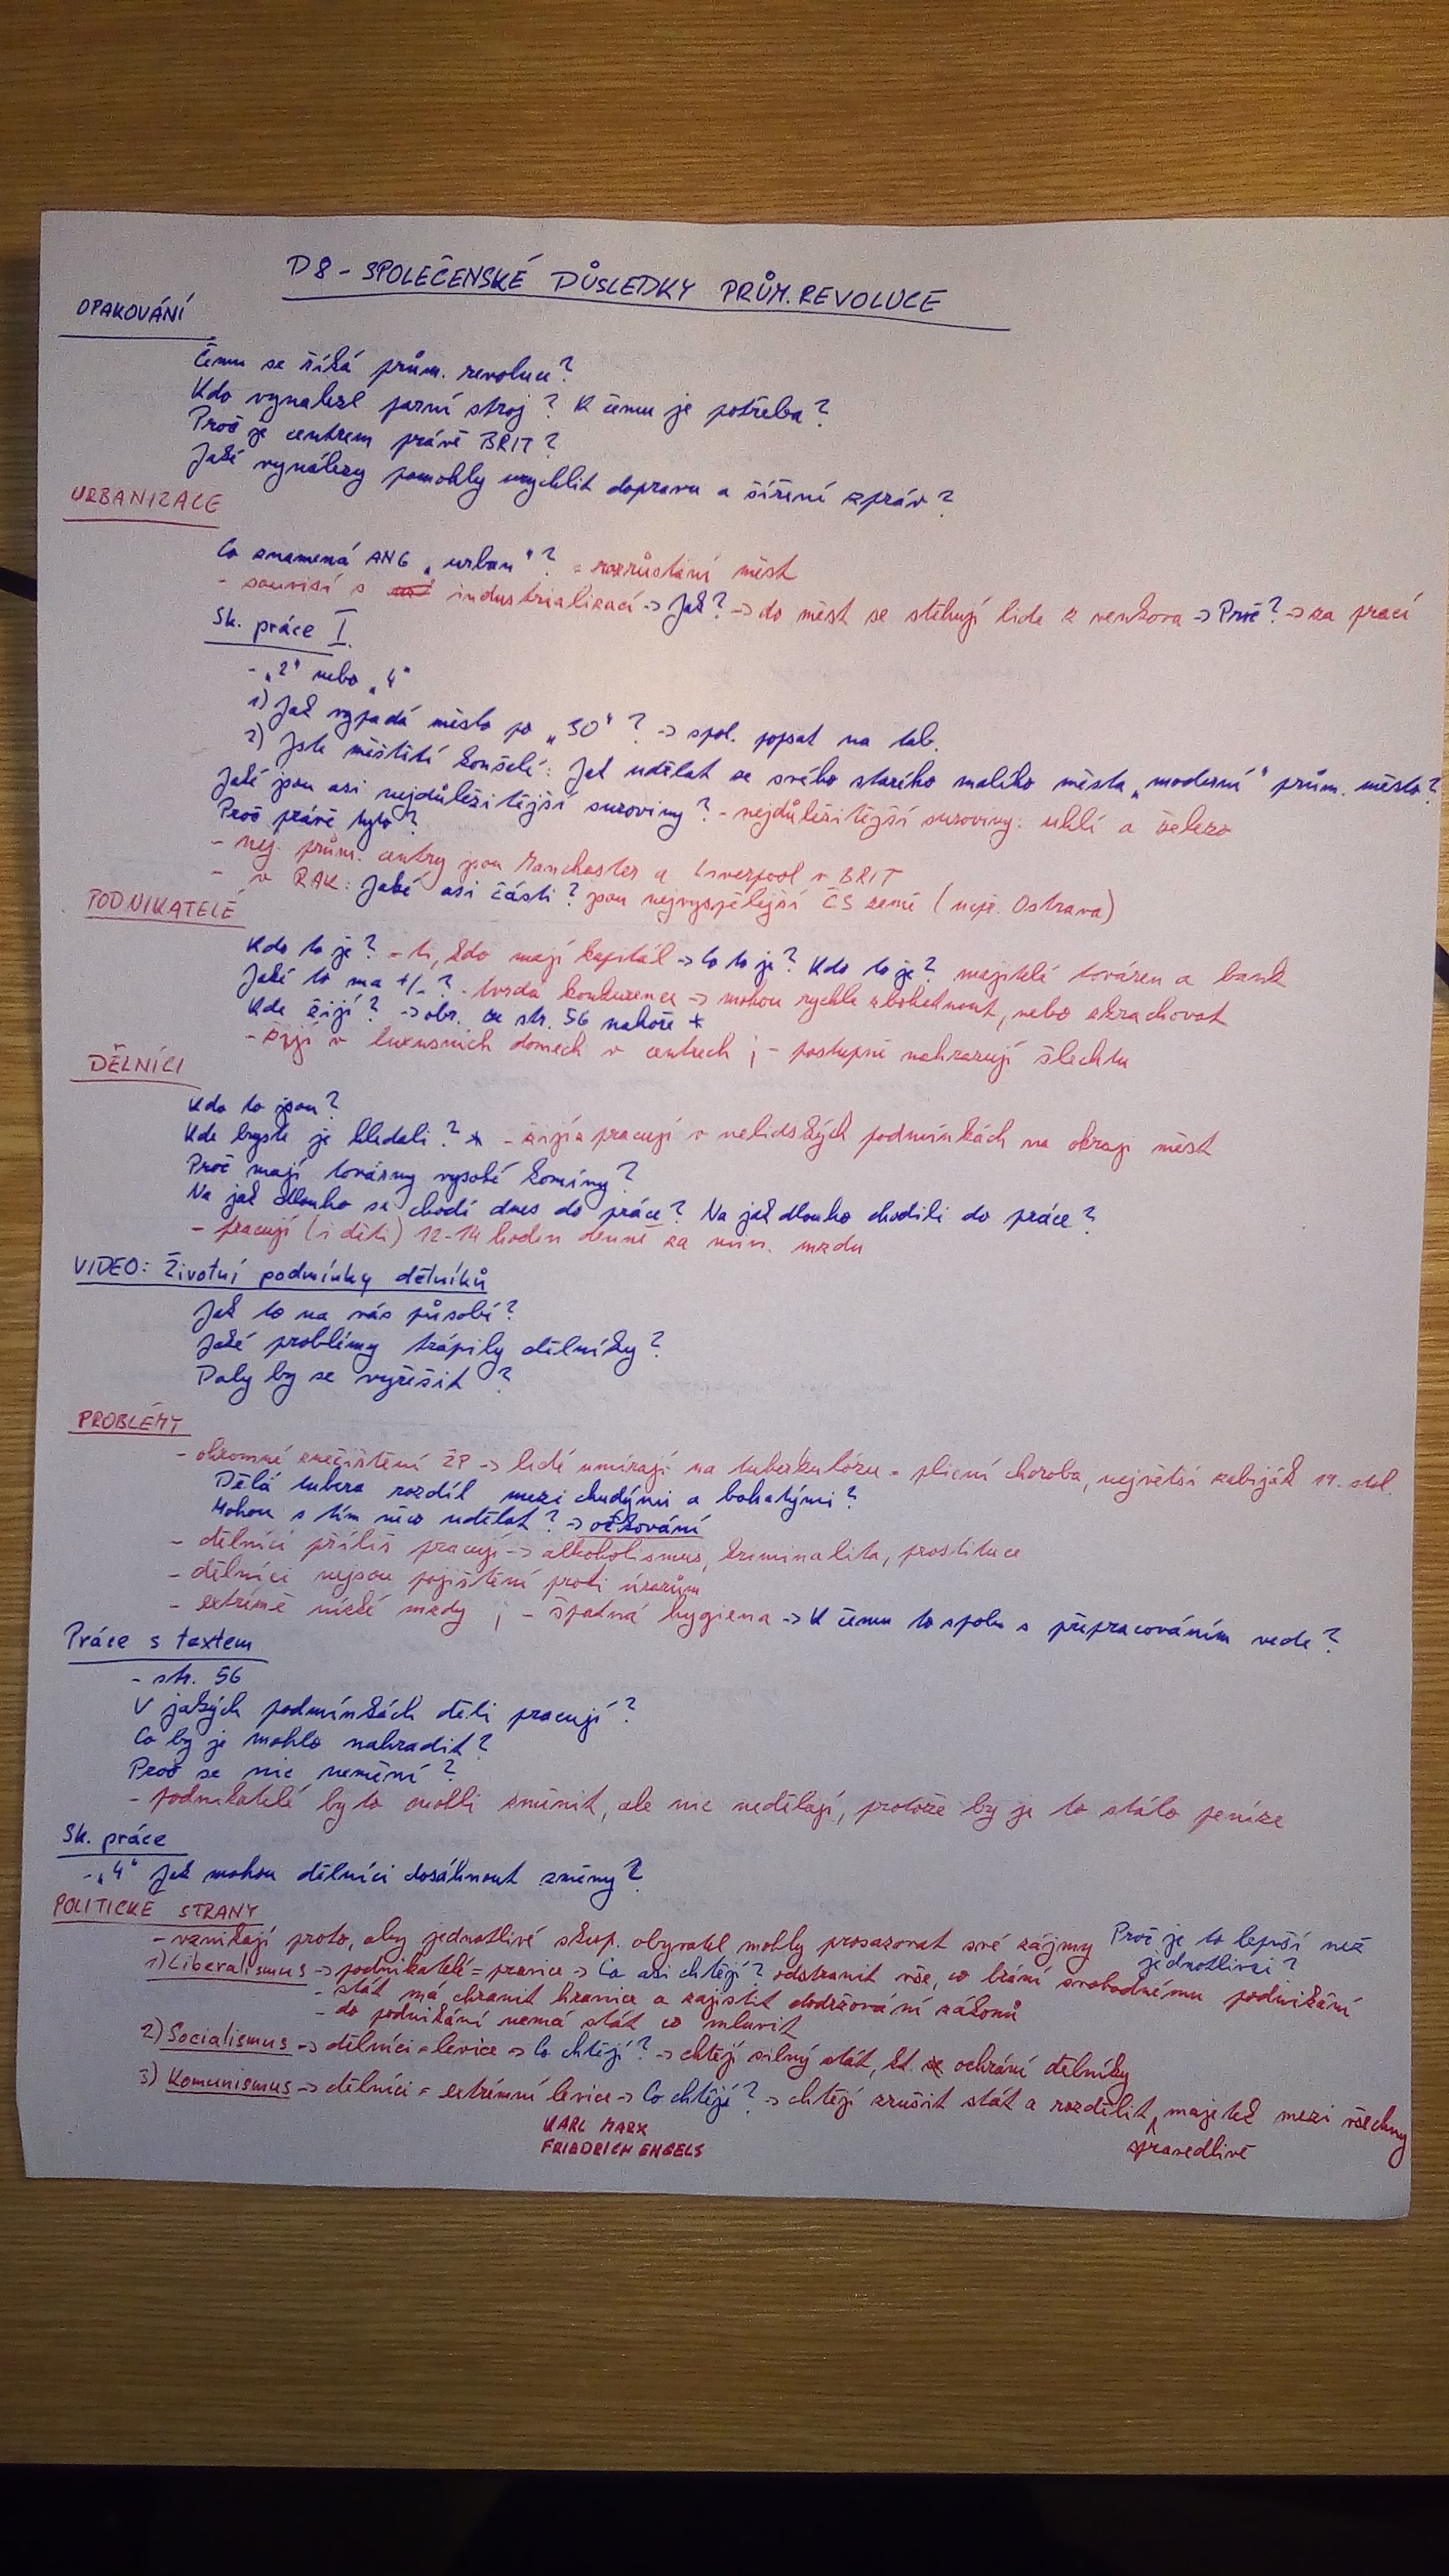 D8 - SPOLEČENSKÉ DŮSLEDKY PRŮM. REVOLUCE
OPAKOVÁNÍ
Čemu se říká prům. revoluce?
Kdo vynalezl parní stroj? K čemu je potřeba?
Proč je centrem právě BRIT?
Jaké vynálezy pomohly urychlit dopravu a šíření zpráv?
URBANIZACE
Co znamená ANG „urban"? = rozrůstání měst
- souvisí s industrializací -> Jak? -> do měst se stěhují lidé z venkova -> Proč? -> za prací
Sk. práce I.
- „2" nebo „4"
1) Jak vypadá město po „30"? -> spol. popsat na tab.
2) Jste městští konšelé: Jak udělat ze svého starého malého města „moderní" prům. město?
Jaké jsou asi nejdůležitější suroviny? - nejdůležitější suroviny: uhlí a železo
Proč právě tyto?
- nej. prům. centry jsou Manchester a Liverpool v BRIT
- v RAK: Jaké asi části? jsou nejvyspělejší ČS země (např. Ostrava)
PODNIKATELÉ
Kdo to je? - ti, kdo mají kapitál -> Co to je? Kdo to je? majitelé továren a bank
Jaké to má +/- ? - tvrdá konkurence -> mohou rychle zbohatnout, nebo zkrachovat
Kde žijí? -> obr. ze str. 56 nahoře *
- žijí v luxusních domech v centrech ; - postupně nahrazují šlechtu
DĚLNÍCI
Kdo to jsou?
Kde byste je hledali? * - žijí a pracují v nelidských podmínkách na okraji měst
Proč mají továrny vysoké komíny?
Na jak dlouho se chodí dnes do práce? Na jak dlouho chodili do práce?
- pracují (i děti) 12-14 hodin denně za min. mzdu
VIDEO: Životní podmínky dělníků
Jak to na vás působí?
Jaké problémy trápily dělníky?
Daly by se vyřešit?
PROBLÉMY
- ohromné znečištění ŽP -> lidé umírají na tuberkulózu = plicní choroba, největší zabiják 19. stol.
Dělá tubera rozdíl mezi chudými a bohatými?
Mohou s tím něco udělat? -> očkování
- dělníci příliš pracují -> alkoholismus, kriminalita, prostituce
- dělníci nejsou pojištění proti úrazům
- extrémě nízké mzdy ; - špatná hygiena -> K čemu to spolu s přepracováním vede?
Práce s textem
- str. 56
V jakých podmínkách děti pracují?
Co by je mohlo nahradit?
Proč se nic nemění?
- podnikatelé by to mohli změnit, ale nic nedělají, protože by je to stálo peníze
Sk. práce
- „4" Jak mohou dělníci dosáhnout změny?
POLITICKÉ STRANY
- vznikají proto, aby jednotlivé skup. obyvatel mohly prosazovat své zájmy Proč je to lepší než jednotlivci?
1) Liberalismus -> podnikatelé = pravice -> Co asi chtějí? odstranit vše, co brání svobodnému podnikání
- stát má chránit hranice a zajistit dodržování zákonů
- do podnikání nemá stát co mluvit
2) Socialismus -> dělníci = levice -> Co chtějí? -> chtějí silný stát, kt. ochrání dělníky
3) Komunismus -> dělníci = extrémní levice -> Co chtějí? -> chtějí zrušit stát a rozdělit spravedlivě majetek mezi všechny
KARL MARX
FRIEDRICH ENGELS